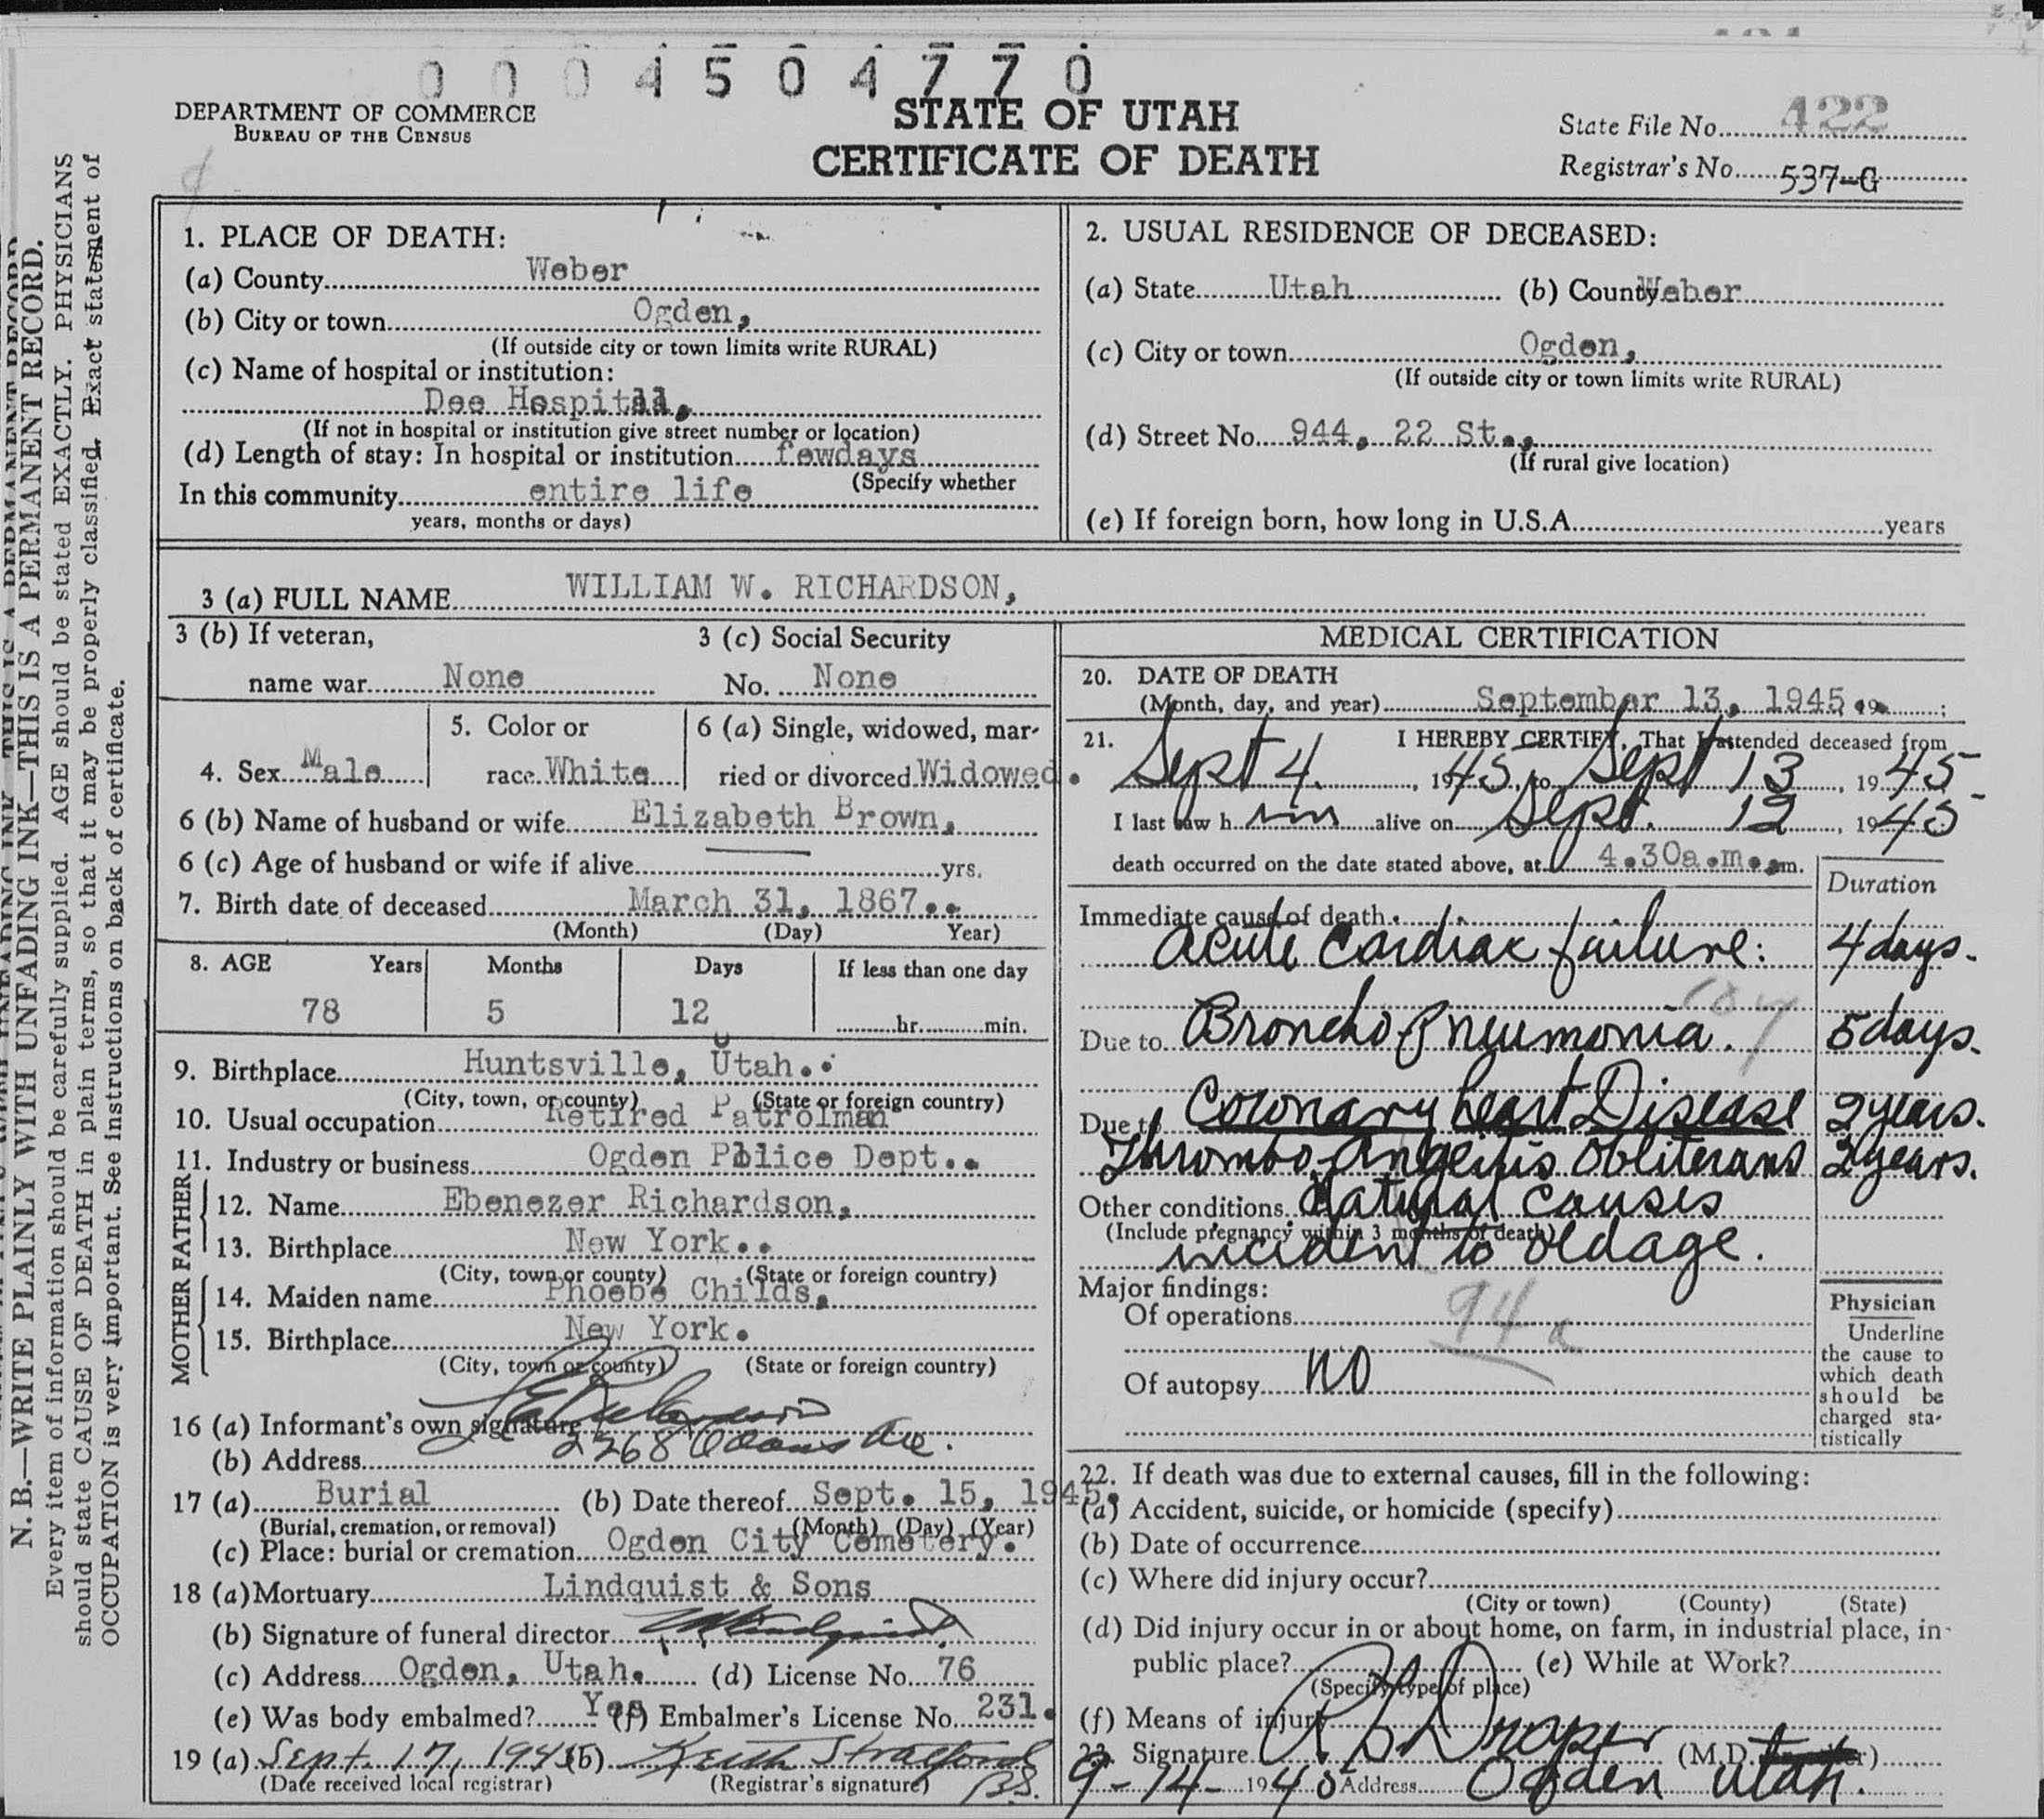 0 0 0 4 5 0 4 7 7 0
DEPARTMENT OF COMMERCE
BUREAU OF THE CENSUS
STATE OF UTAH
CERTIFICATE OF DEATH
State File No. 422
Registrar's No. 537-G
N. B.—WRITE PLAINLY WITH UNFADING INK—THIS IS A PERMANENT RECORD.
Every item of information should be carefully supplied. AGE should be stated EXACTLY. PHYSICIANS
should state CAUSE OF DEATH in plain terms, so that it may be properly classified. Exact statement of
OCCUPATION is very important. See instructions on back of certificate.
1. PLACE OF DEATH:
(a) County Weber
(b) City or town Ogden,
(If outside city or town limits write RURAL)
(c) Name of hospital or institution:
Dee Hospital,
(If not in hospital or institution give street number or location)
(d) Length of stay: In hospital or institution fewdays
(Specify whether
In this community entire life
years, months or days)
2. USUAL RESIDENCE OF DECEASED:
(a) State Utah (b) County Weber
(c) City or town Ogden,
(If outside city or town limits write RURAL)
(d) Street No. 944, 22 St.,
(If rural give location)
(e) If foreign born, how long in U.S.A. years
3 (a) FULL NAME WILLIAM W. RICHARDSON,
3 (b) If veteran,
name war None
3 (c) Social Security
No. None
4. Sex Male
5. Color or
race White
6 (a) Single, widowed, mar-
ried or divorced Widowed.
6 (b) Name of husband or wife Elizabeth Brown,
6 (c) Age of husband or wife if alive yrs.
7. Birth date of deceased March 31, 1867..
(Month) (Day) Year)
8. AGE Years Months Days If less than one day
78 5 12 hr. min.
9. Birthplace Huntsville, Utah..
(City, town, or county) (State or foreign country)
10. Usual occupation Retired Patrolman
11. Industry or business Ogden Police Dept..
FATHER
12. Name Ebenezer Richardson,
13. Birthplace New York..
(City, town or county) (State or foreign country)
MOTHER
14. Maiden name Phoebe Childs,
15. Birthplace New York.
(City, town or county) (State or foreign country)
16 (a) Informant's own signature Richardson
(b) Address 2268 Adams Ave.
17 (a) Burial (b) Date thereof Sept. 15, 1945.
(Burial, cremation, or removal) (Month) (Day) (Year)
(c) Place: burial or cremation Ogden City Cemetery.
18 (a) Mortuary Lindquist & Sons
(b) Signature of funeral director Lindquist
(c) Address Ogden, Utah. (d) License No. 76
(e) Was body embalmed? Yes (f) Embalmer's License No. 231.
19 (a) Sept. 17, 1945 (b) Keith Stratford
(Date received local registrar) (Registrar's signature) BS.
MEDICAL CERTIFICATION
20. DATE OF DEATH
(Month, day, and year) September 13, 1945, 19 ;
21. I HEREBY CERTIFY, That I attended deceased from
Sept 4, 1945, to Sept 13, 1945
I last saw h im alive on Sept. 12, 1945
death occurred on the date stated above, at 4.30a.m. m.
Duration
Immediate cause of death
Acute Cardiac failure: 4 days.
107
Due to Broncho Pneumonia. 5 days.
Due to Coronary heart Disease 2 years.
Thrombo-Angeitis Obliterans 2 years.
Other conditions Natural causes
(Include pregnancy within 3 months of death)
incident to old age.
Major findings:
Of operations
94a
Of autopsy no
Physician
Underline
the cause to
which death
should be
charged sta-
tistically
22. If death was due to external causes, fill in the following:
(a) Accident, suicide, or homicide (specify)
(b) Date of occurrence
(c) Where did injury occur?
(City or town) (County) (State)
(d) Did injury occur in or about home, on farm, in industrial place, in-
public place? (e) While at Work?
(Specify type of place)
(f) Means of injury
23. Signature Draper (M.D. )
9-14-1945 Address Ogden Utah.